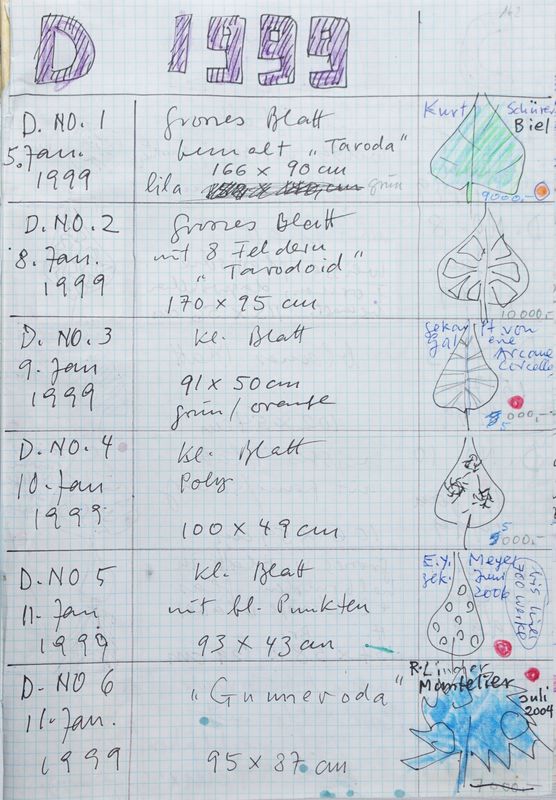 142
D 1999
D. NO. 1
5. Jan.
1999
Grosses Blatt
bemalt „Taroda"
166 x 90 cm
lila
grün
Kurt Schürer
Biel
9000.-
D. NO. 2
8. Jan.
1999
Grosses Blatt
mit 8 Feldern
„Tarodoid"
170 x 95 cm
10000.-
D. NO. 3
9. Jan
1999
kl. Blatt
91 x 50 cm
grün / orange
von
Arcane
5000.-
D. NO. 4
10. Jan
1999
kl. Blatt
Poly
100 x 49 cm
5000.-
D. NO 5
11. Jan
1999
kl. Blatt
mit bl. Punkten
93 x 43 cm
E.Y. Meyer
Juni
2006
D. NO 6
11. Jan.
1999
„Gunneroda"
95 x 87 cm
Montelier
Juli
2004
7000.-